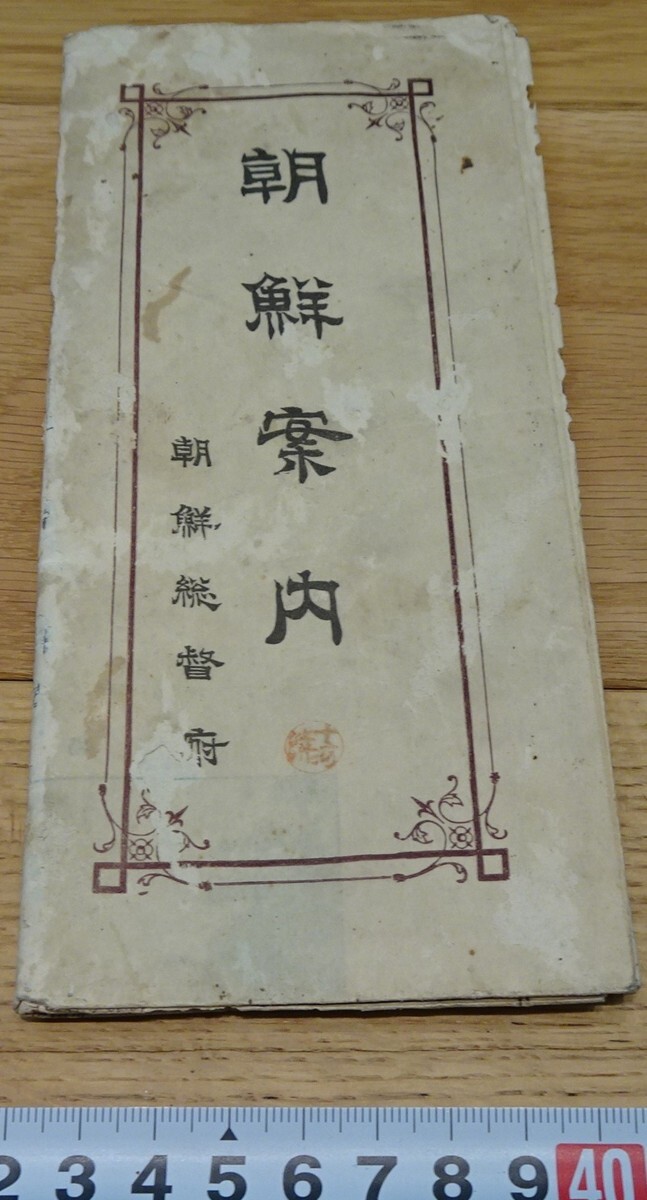 朝鮮案内
朝鮮総督府
2 3 4 5 6 7 8 9 40